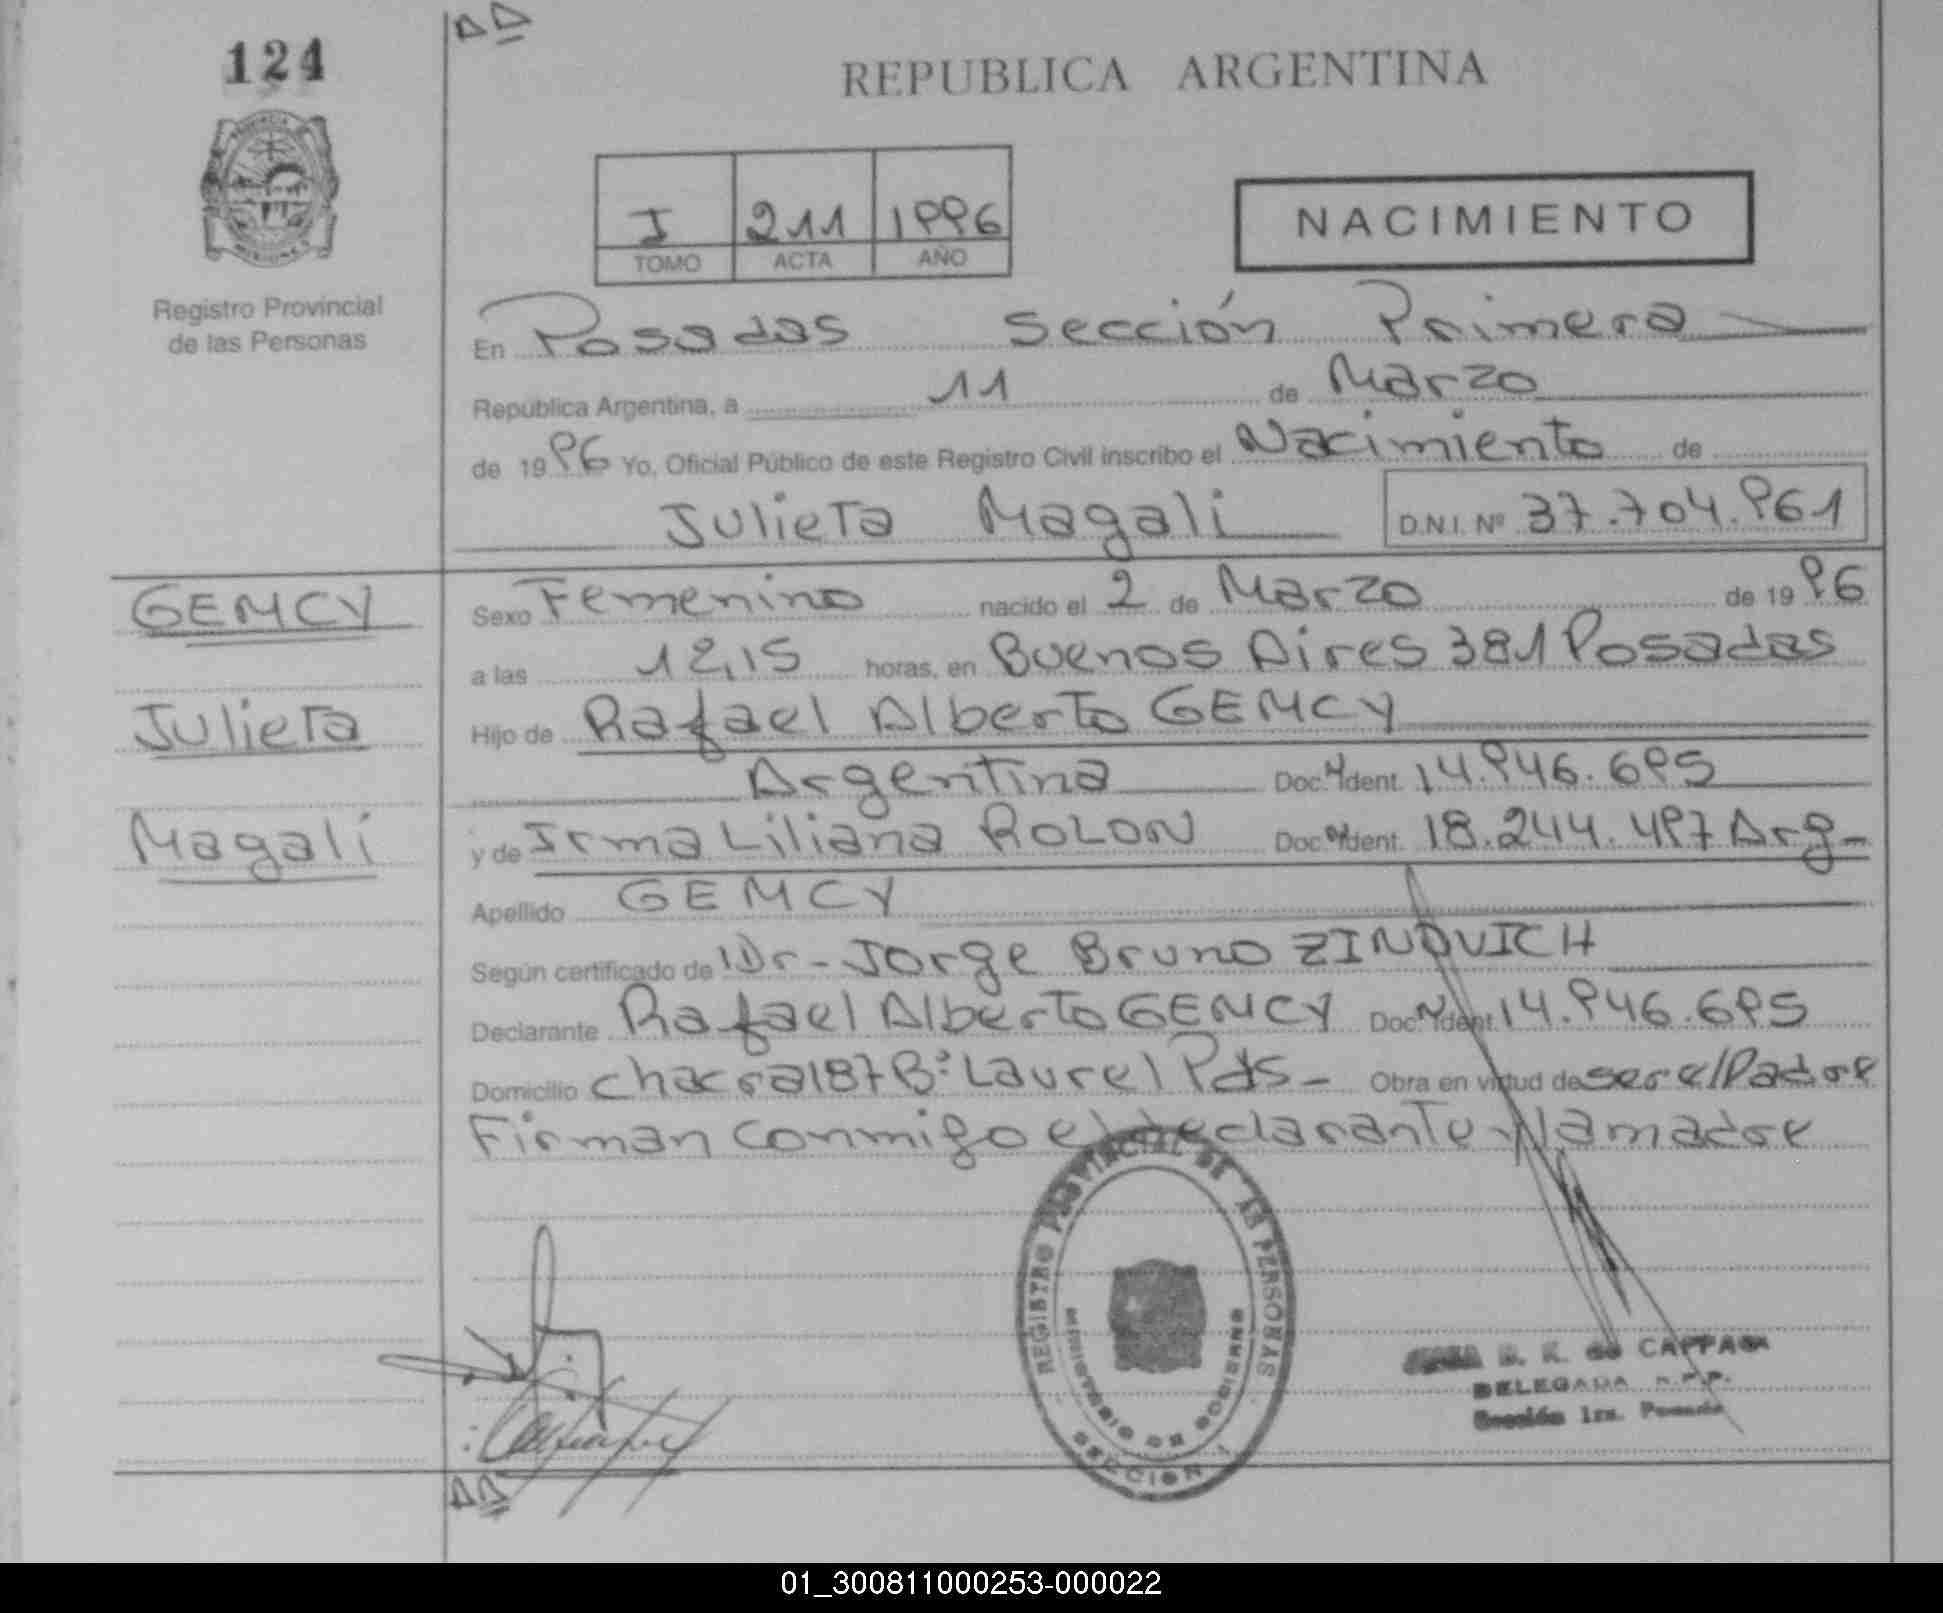 124
REPUBLICA ARGENTINA
I 211 1996
TOMO ACTA AÑO
NACIMIENTO
Registro Provincial
de las Personas
En Posadas Sección Primera
República Argentina, a 11 de Marzo
de 1996 Yo, Oficial Público de este Registro Civil inscribo el Nacimiento de
Julieta Magali D.N.I. Nº 37.704.961
GEMCY
Julieta
Magali
Sexo Femenino nacido el 2 de Marzo de 1996
a las 12,15 horas, en Buenos Aires 381 Posadas
Hijo de Rafael Alberto GEMCY
Argentina Doc. Ident. 14.946.695
y de Irma Liliana ROLON Doc. Ident. 18.244.497 Arg-
Apellido GEMCY
Según certificado de Dr- Jorge Bruno ZINOVICH
Declarante Rafael Alberto GEMCY Doc. Ident. 14.946.695
Domicilio Chacra 187 B: Laurel Pds- Obra en virtud de ser el Padre
Firman conmigo el declarante y la madre
REGISTRO PROVINCIAL DE LAS PERSONAS
MINISTERIO DE GOBIERNO
SECCION 1
de CAPPAGA
DELEGADA R.P.P.
Sección 1ra. Posadas
01_300811000253-000022